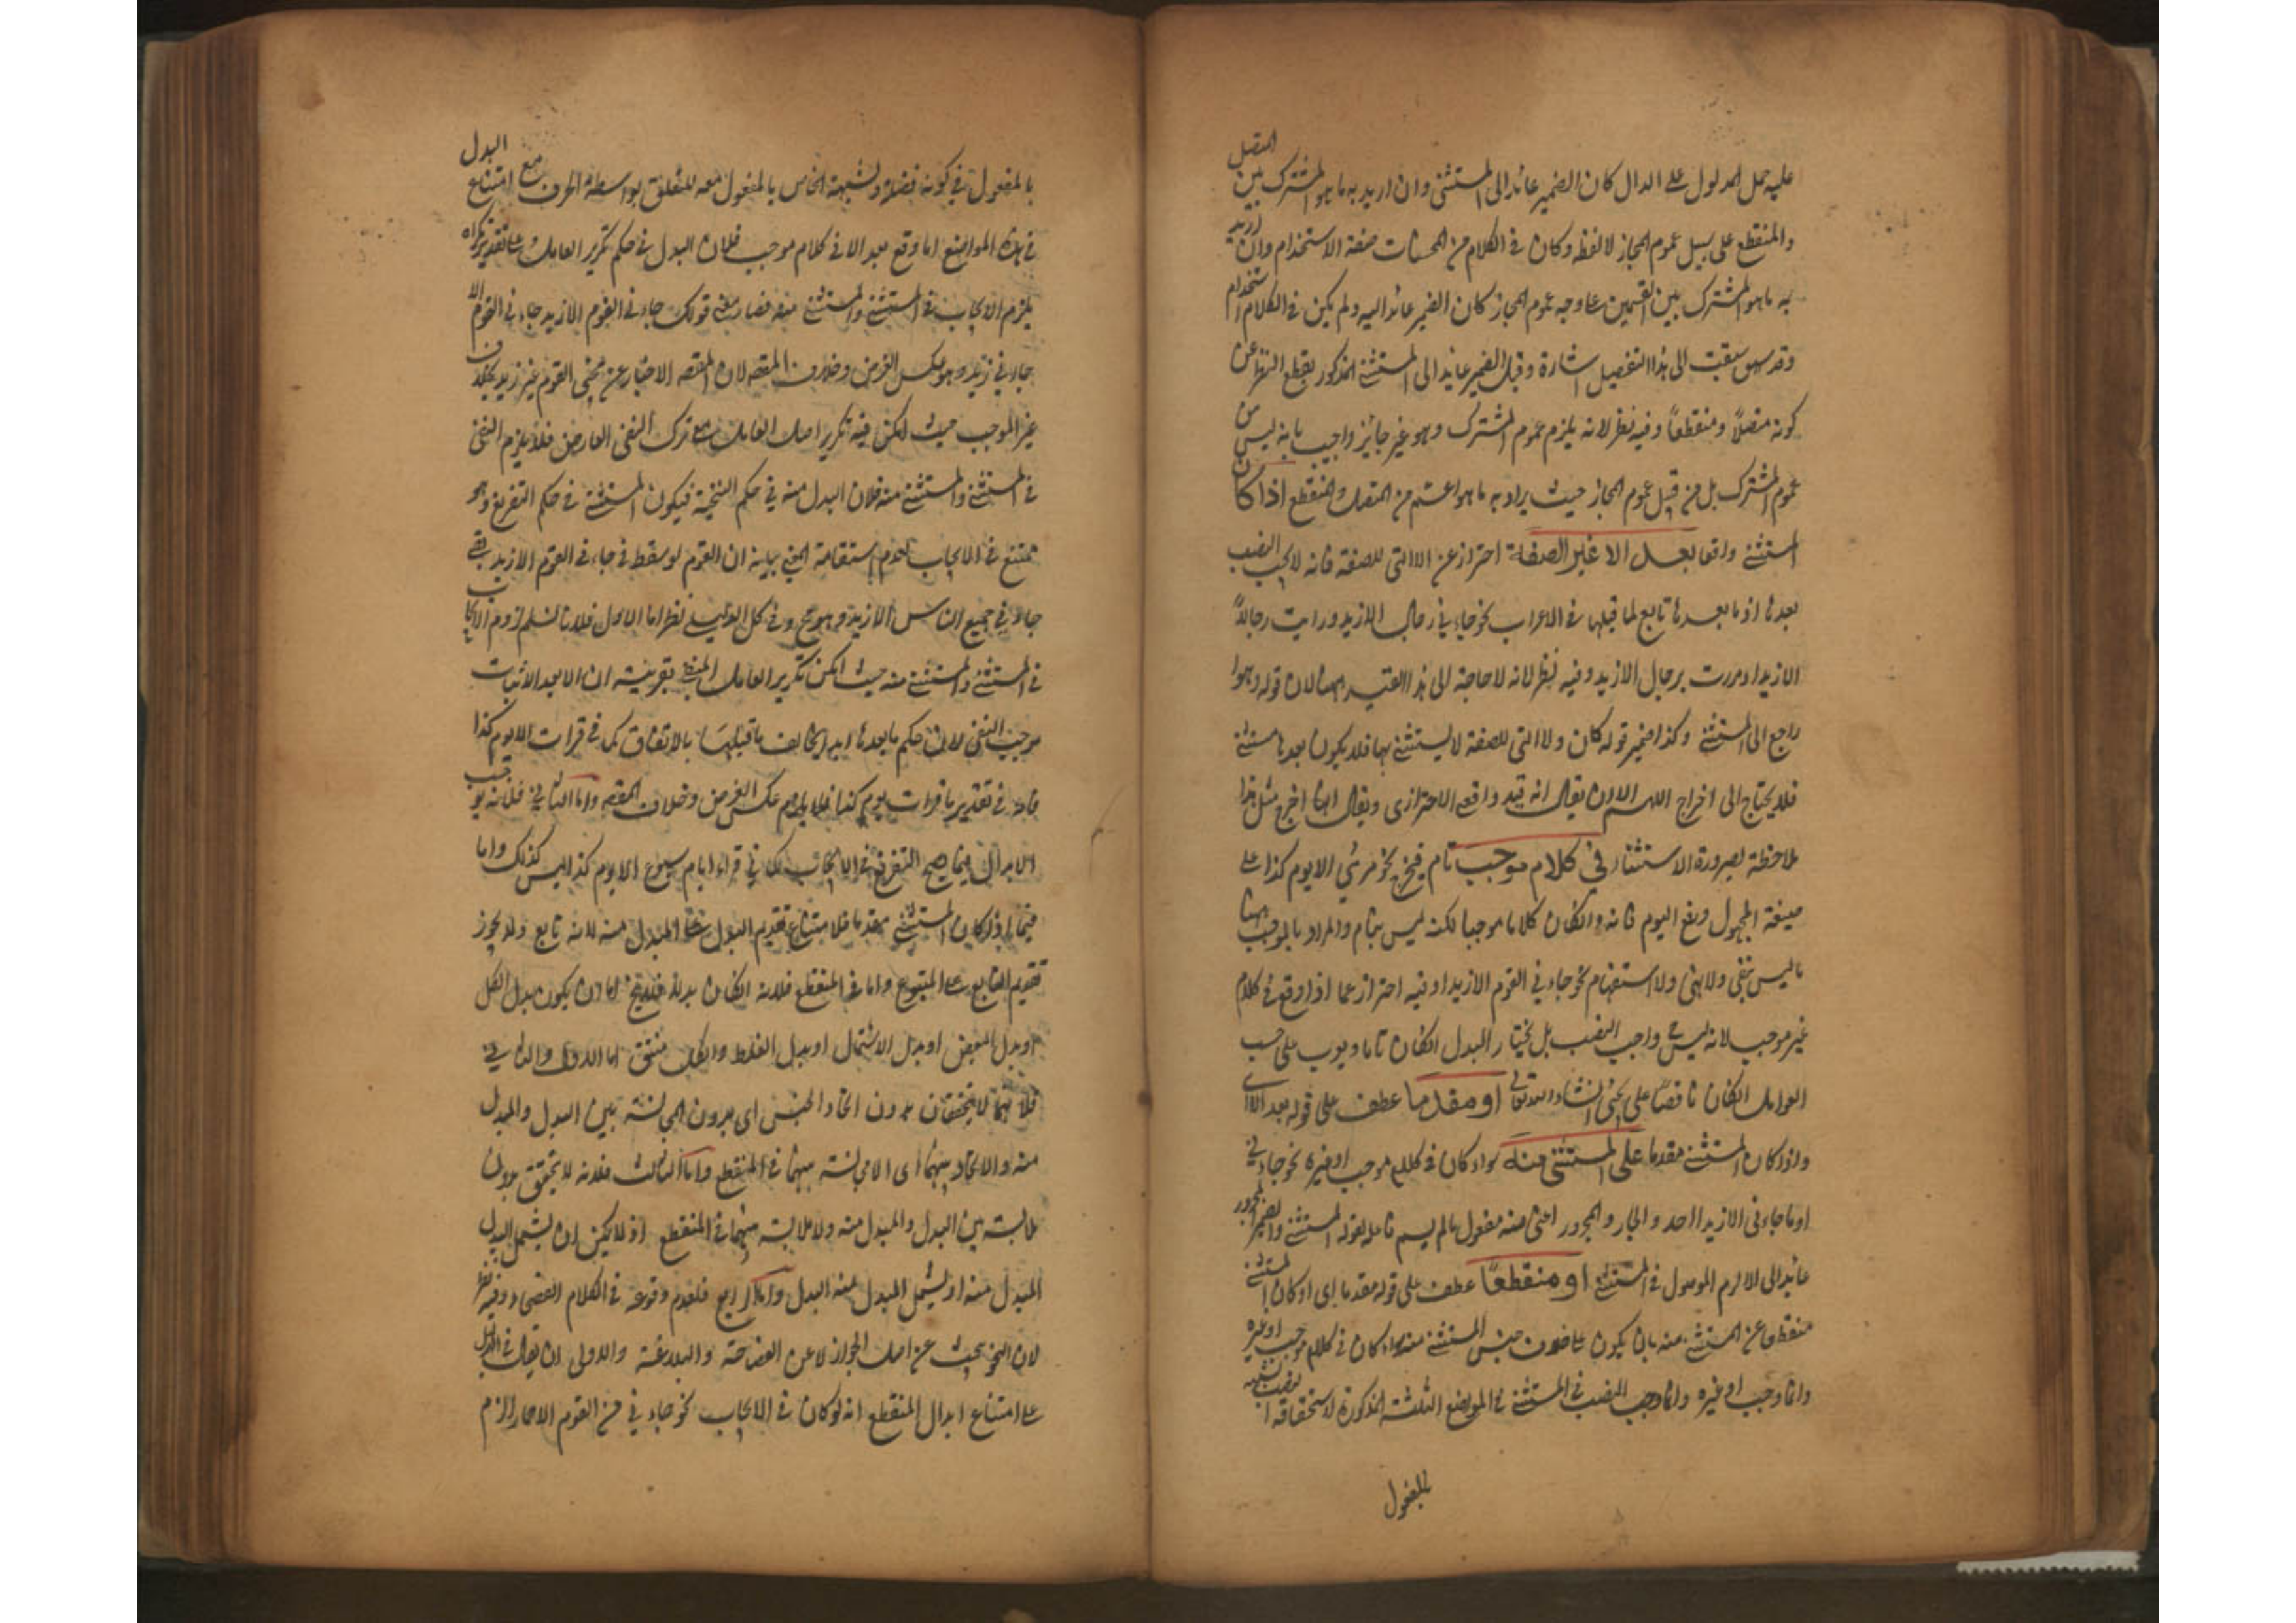 عليه حمل المدلول على الدال كان الضمير عائدا الى المستثنى وان اريد به ما هو المشترك بين المتصل
والمنقطع على سبيل عموم المجاز لا لفظه وكان في الكلام من المحسنات صفة الاستخدام وان اريد
به ما هو المشترك بين القسمين على وجه عموم المجاز كان الضمير عائدا اليه ولم يكن في الكلام استخدام
وقد سبقت الى هذا التفصيل اشارة وقيل الضمير عائد الى المستثنى المذكور بقطع النظر عن
كونه متصلاً ومنقطعاً وفيه نظر لانه يلزم عموم المشترك وهو غير جائز واجيب بانه ليس من
عموم المشترك بل من قبيل عموم المجاز حيث يراد به ما هو اعم من المتصل والمنقطع اذا كان
المستثنى واقعا بعد الا غير الصفة احتراز عن الا التي للصفة فانه لا يجب النصب
بعدها اذ ما بعدها تابع لما قبلها في الاعراب نحو جاءني رجال الا زيد ورايت رجالاً
الا زيدا ومررت برجال الا زيد وفيه نظر لانه لا حاجة الى هذا القيد ههنا لان قوله وهو
راجع الى المستثنى وكذا ضمير قوله كان ولا التي للصفة لا يستثنى بها فلا يكون بعدها مستثنى
فلا يحتاج الى اخراج اللهم الا ان يقال انه قيد واقعي لا احترازي ويقال انما اخرج مثل هذا
ملاحظة لصورة الاستثناء في كلام موجب تام فيخرج نحو قرئ الا يوم كذا على
صيغة المجهول ورفع اليوم فانه وان كان كلاما موجبا لكنه ليس بتام والمراد بالموجب ههنا
ما ليس بنفي ولا نهي ولا استفهام نحو جاءني القوم الا زيدا وفيه احتراز عما اذا وقع في كلام
غير موجب لانه ليس واجب النصب بل يختار البدل ان كان تاما ويعرب على حسب
العوامل ان كان ناقصاً على يجئ ان شاء الله تعالى او مقدما عطف على قوله بعد الا اى
واذا كان المستثنى مقدما على المستثنى منه سواء كان في كلام موجب او غيره نحو جاءني
او ما جاءني الا زيدا احد والجار والمجرور اعني منه مفعول ما لم يسم فاعله لقوله المستثنى والضمير المجرور
عائد الى اللام الموصول في المستثنى او منقطعاً عطف على قوله مقدما اى او كان المستثنى
منقطعا عن المستثنى منه بان يكون على خلاف جنس المستثنى منه سواء كان في كلام موجب او غيره
وانما وجب النصب في المستثنى في المواضع الثلثة المذكورة لاستحقاقه النصب
بالمفعول
بالمفعول في كونه فضلة ولشبهه الخاص بالمفعول معه للتعلق بواسطة الحرف مع امتناع البدل
في هذه المواضع اما وقع بعد الا في كلام موجب فلان البدل في حكم تكرير العامل وعلى تقدير تكراره
يلزم الايجاب في المستثنى والمستثنى منه فصار معنى قولك جاءني القوم الا زيد جاءني القوم الا
جاءني زيد وهو عكس الغرض وخلاف المقصد لان المقصد الاخبار عن مجئ القوم غير زيد بخلاف
غير الموجب حيث امكن فيه تكرير اصل العامل مع ترك النفي العارض فلا يلزم النفي
في المستثنى والمستثنى منه فلان البدل منه في حكم التنحية فيكون المستثنى في حكم التفريغ وهو
ممتنع في الايجاب لعدم استقامة المعنى بيانه ان القوم لو سقط في جاءني القوم الا زيد بقي
جاءني جميع الناس الا زيد وهو مح وفي كل الدليلين نظر اما الاول فلانا لا نسلم لزوم الايجاب
في المستثنى والمستثنى منه حيث امكن تكرير العامل المنفي بقرينة ان الا بعد الاثبات
موجب النفي لان حكم ما بعدها ابدا يخالف ما قبلها بالاتفاق كما في قرات الا يوم كذا
فانه في تقدير ما قرات يوم كذا فلا يلزم عكس الغرض وخلاف المقصد واما الثاني فلانه يوجب
الابدال فيما يصح التفريغ في الايجاب كما في قراء ايام سبوع الا يوم كذا ليس كذلك واما
فيما اذا كان المستثنى مقدما فلامتناع تقديم البدل على المبدل منه لانه تابع ولا يجوز
تقديم التابع على المتبوع واما في المنقطع فلانه ان كان بدلا فلا يخ اما ان يكون بدل الكل
او بدل البعض او بدل الاشتمال او بدل الغلط والكل منتف اما الاول والثاني
فلانهما لا يتحققان بدون اتحاد الجنس اى بدون المجانسة بين البدل والمبدل
منه ولا اتحاد بينهما اى لا مجانسة بينهما في المنقطع واما الثالث فلانه لا يتحقق بدون
ملابسة بين البدل والمبدل منه ولا ملابسة بينهما في المنقطع اذ لا يمكن ان يشمل البدل
المبدل منه او يشمل المبدل منه البدل واما الرابع فلعدم وقوعه في الكلام الفصيح وفيه نظر
لان النحو يبحث عن اصل الجواز لا عن الفصاحة والبلاغة والاولى ان يقال في الدليل
على امتناع ابدال المنقطع انه لو كان في الايجاب نحو جاءني من القوم الا حمار الزم